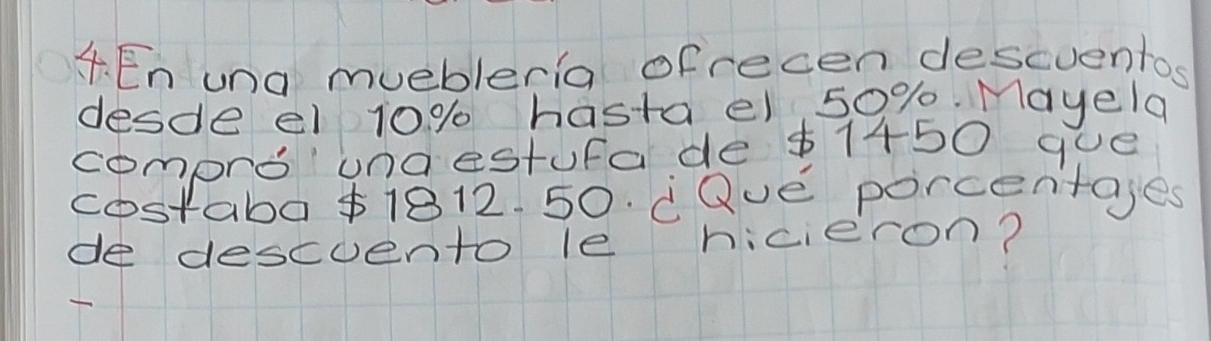 4. En una mueblería ofrecen descuentos
desde el 10% hasta el 50%. Mayela
compró una estufa de $1450 que
costaba $1812.50. ¿Qué porcentajes
de descuento le hicieron?
-